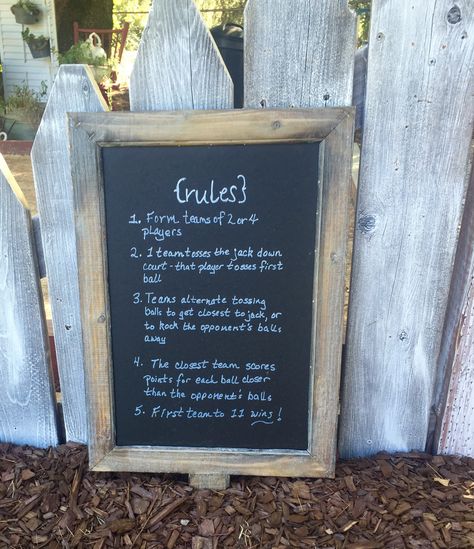 {rules}
1. Form teams of 2 or 4
players
2. 1 team tosses the jack down
court - that player tosses first
ball
3. Teams alternate tossing
balls to get closest to jack, or
to kock the opponent's balls
away
4. The closest team scores
points for each ball closer
than the opponent's balls
5. First team to 11 wins!